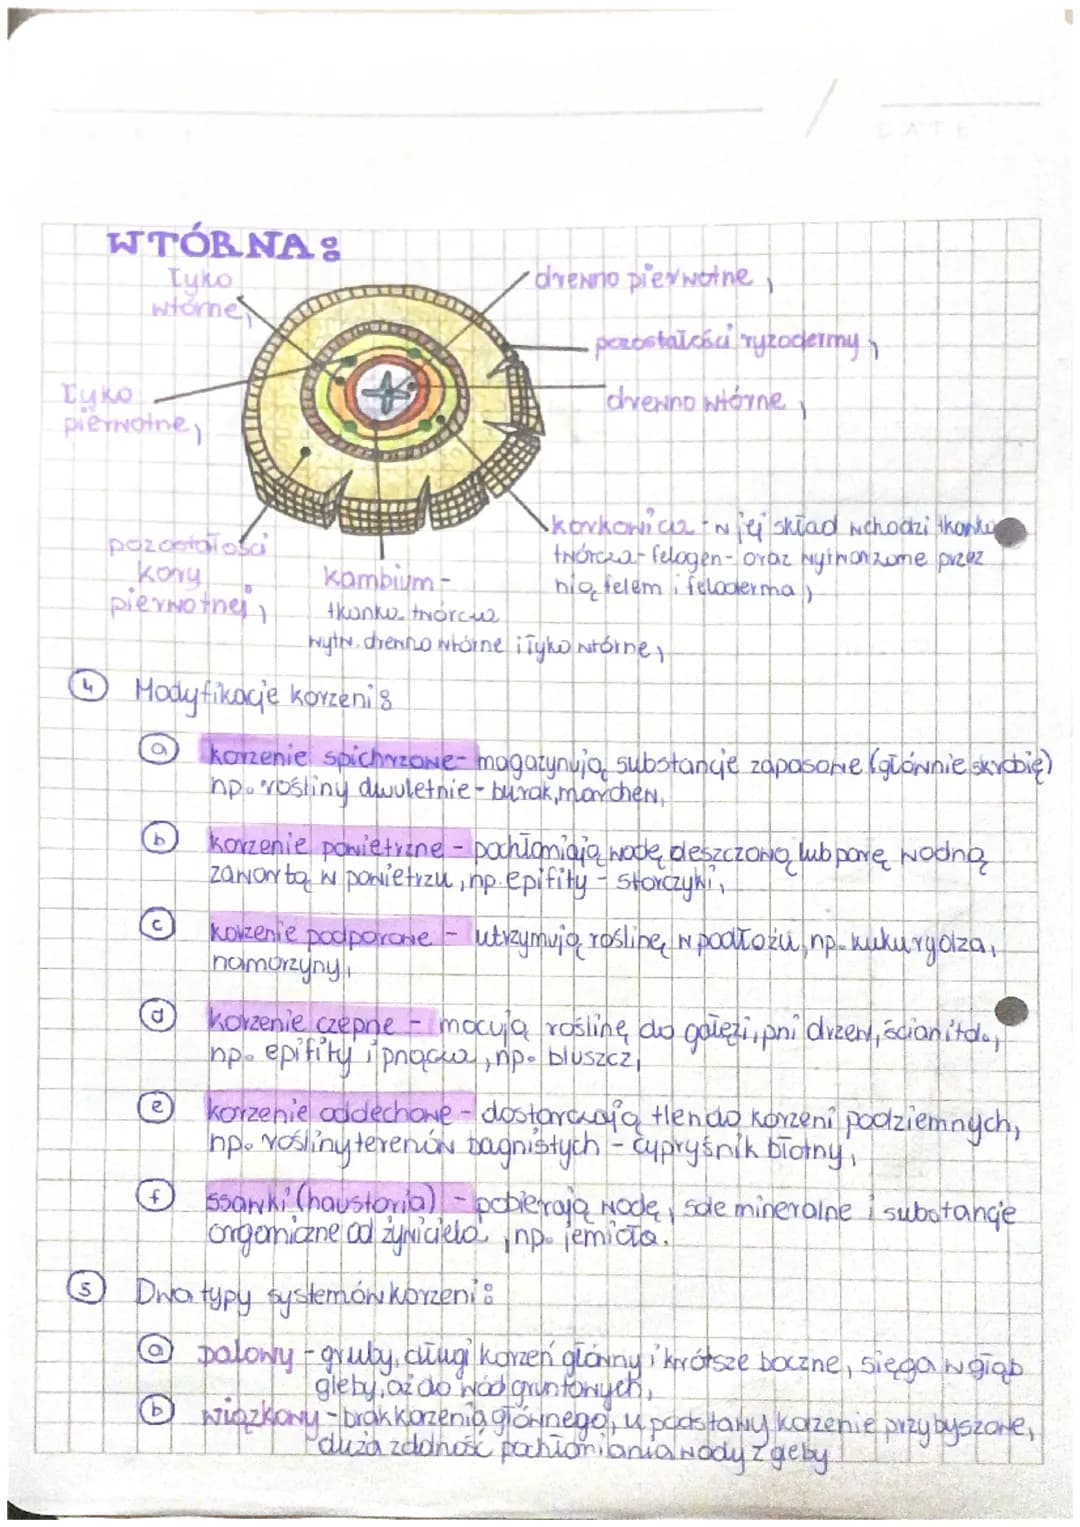 DATE
WTÓRNA:
łyko
wtórne,
drewno pierwotne,
pozostałości ryzodermy,
łyko
pierwotne,
drewno wtórne,
korkowica - w jej skład wchodzi tkanka
twórcza - felogen - oraz wytworzome przez
nią felem i feloderma,
pozostałości
kory
pierwotnej,
kambium -
tkanka twórcza
wytw. drewno wtórne i łyko wtórne,
4 Modyfikacje korzeni:
a korzenie spichrzowe - magazynują substancje zapasowe (głównie skrobię)
np. rośliny dwuletnie - burak, marchew,
b korzenie powietrzne - pochłaniają wodę deszczową lub parę wodną
zawartą w powietrzu, np. epifity - storczyki,
c korzenie podporowe - utrzymują roślinę w podłożu, np. kukurydza,
namorzyny,
d korzenie czepne - mocują roślinę do gałęzi, pni drzew, ścian itd.,
np. epifity i pnącza, np. bluszcz,
e korzenie oddechowe - dostarczają tlen do korzeni podziemnych,
np. rośliny terenów bagnistych - cypryśnik błotny,
f ssawki (haustoria) - pobierają wodę, sole mineralne i substancje
organiczne od żywiciela, np. jemioła.
5 Dwa typy systemów korzeni:
a palowy - gruby, długi korzeń główny i krótsze boczne, sięga w głąb
gleby, aż do wód gruntowych,
b wiązkowy - brak korzenia głównego, u podstawy korzenie przybyszowe,
duża zdolność pochłaniania wody z geby